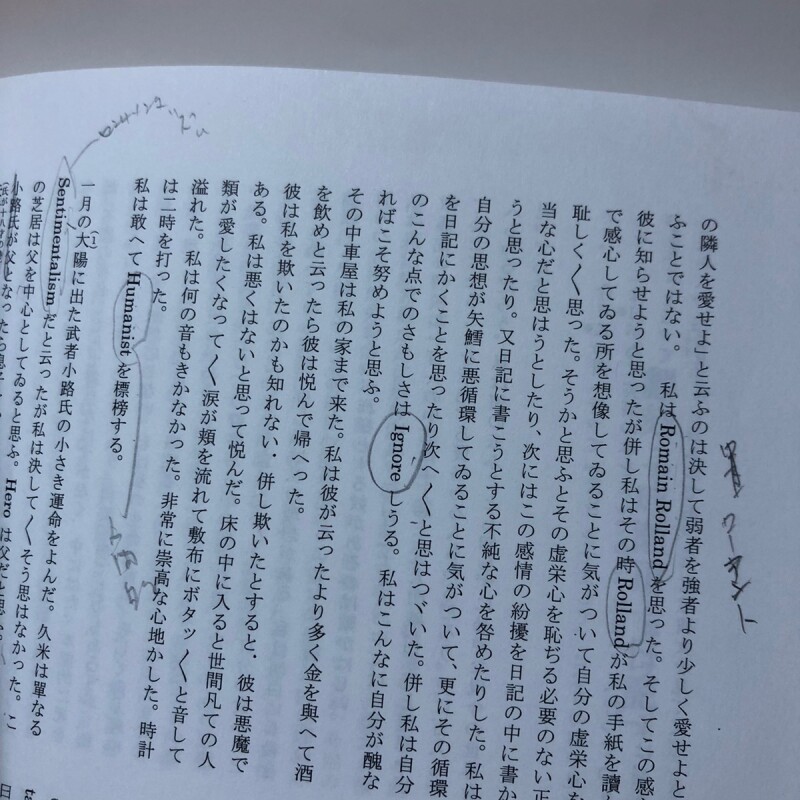 の隣人を愛せよ」と云ふのは決して弱者を強者より少しく愛せよと
ふことではない。　私は Romain Rolland を思った。そしてこの感
彼に知らせようと思ったが併し私はその時 Rolland が私の手紙を読
で感心してゐる所を想像してゐることに気がついて自分の虚栄心を
恥しく〱思った。そうかと思ふとその虚栄心を恥ぢる必要のない正
当な心だと思はうとしたり、次にはこの感情の紛擾を日記の中に書か
うと思ったり。又日記に書こうとする不純な心を咎めたりした。私は
自分の思想が矢鱈に悪循環してゐることに気がついて、更にその循環
を日記にかくことを思ったり次へ〱と思はつゞいた。併し私は自分
のこんな点でのさもしさは Ignore しうる。私はこんなに自分が醜な
ればこそ努めようと思ふ。
その中車屋は私の家まで来た。私は彼が云ったより多く金を與へて酒
を飲めと云ったら彼は悦んで帰へった。
彼は私を欺いたのかも知れない・併し欺いたとすると・彼は悪魔で
ある。私は悪くはないと思って悦んだ。床の中に入ると世間凡ての人
類が愛したくなって〱涙が頬を流れて敷布にボタッ〱と音して
溢れた。私は何の音もきかなかった。非常に崇高な心地かした。時計
は二時を打った。
私は敢へて Humanist を標榜する。
一月の大陽に出た武者小路氏の小さき運命をよんだ。久米は単なる
(1)
Sentimentalism だと云ったが私は決して〱そう思はなかった。こ
の芝居は父を中心としてゐると思ふ。Hero は父だと思ふ。
小路氏が父となったら息子